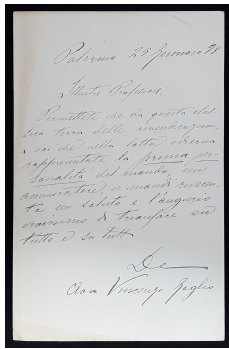 Palermo 25 Gennaio 98
Illustre Professore,
Permettete che da questa
terra delle rivendicazioni,
a voi che nella lotta odierna
rappresentate la prima per-
sonalità del mondo, un
ammiratore, vi mandi
un saluto e l'augurio
di trionfare su
tutto e su tutti
Vincenzo Reglio